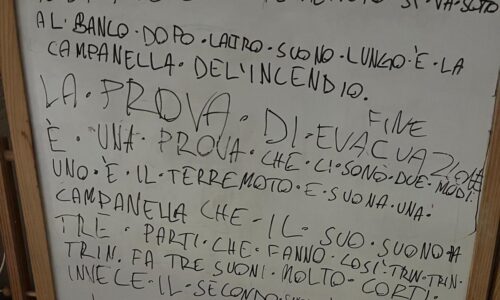 SI·VA·SOTTO
AL·BANCO·DOPO·LALTRO·SUONO·LUNGO·È·LA
CAMPANELLA·DELL'INCENDIO.
FINE
LA·PROVA·DI·EVACUAZIONE
È·UNA·PROVA·CHE·CI·SONO·DUE·MODI:
UNO·È·IL·TERREMOTO·E·SUONA·UNA·
CAMPANELLA CHE·IL·SUO·SUONO·A
TRE·PARTI·CHE·FANNO·COSÌ·TRIN·TRIN·
TRIN·FA TRE SUONI·MOLTO·CORTI·
INVECE·IL·SECONDO